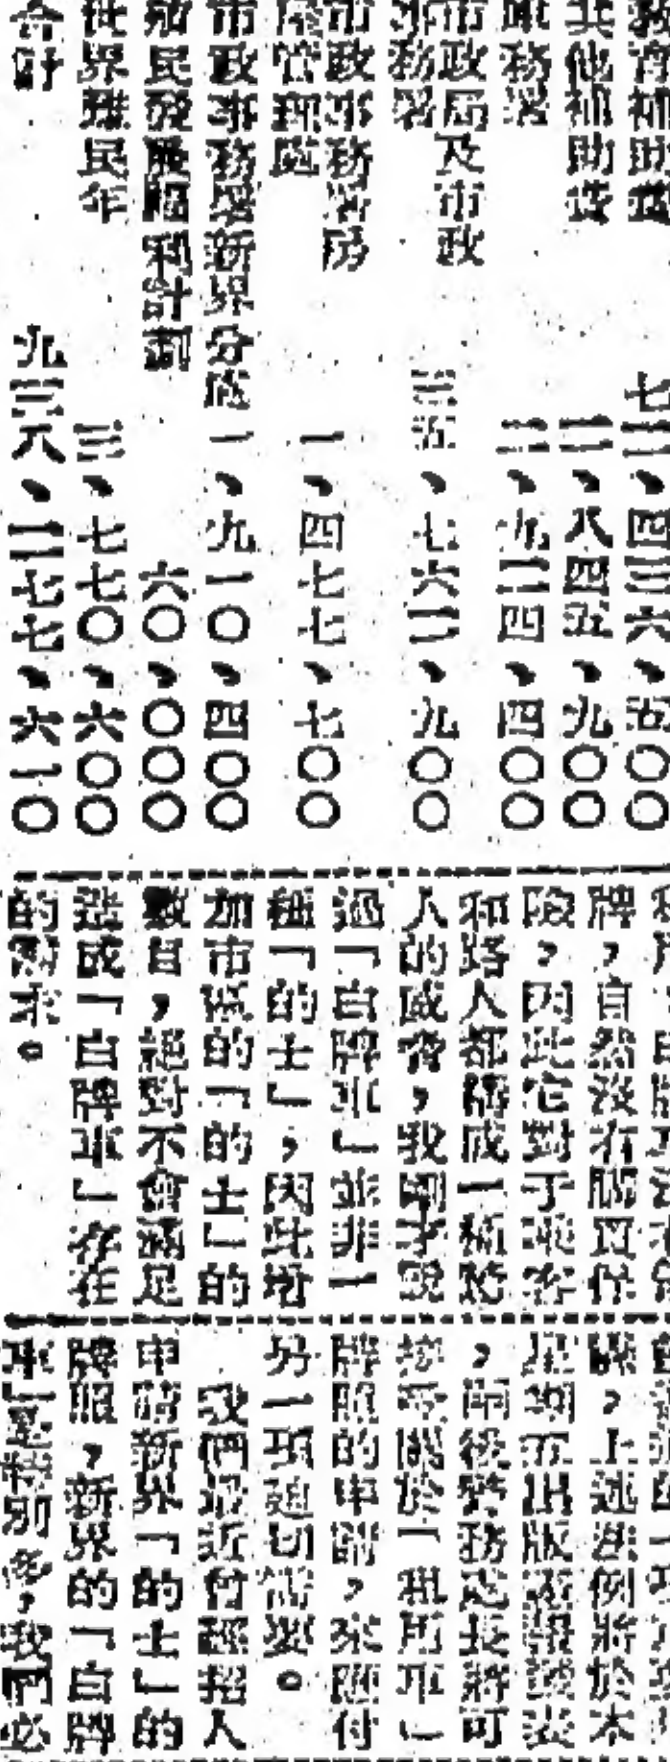 教育補助費 七二、四三六、五〇〇
其他補助費 二、八四五、九〇〇
庫務署 二、九二四、四〇〇
市政局及市政
事務署 三五、七六二、九〇〇
市政事務署房
屋管理處 一、四七七、七〇〇
市政事務署新界分處 一、九一〇、四〇〇
殖民發展福利計劃 六〇、〇〇〇
世界難民年 三、七七〇、六〇〇
合計 九三八、二七七、六一〇
牌,自然沒有購買保
險,因此它對于乘客
和路人都構成一種時
人的威脅,我剛才說
過「白牌車」並非一
種「的士」,因此增
加市區的「的士」的
數目,絕對不會滿足
造成「白牌車」存在
的需求。
,上述法例將於本
星期五出版憲報發表
,開後警務處長將可
接受關於「租用車」
牌照的申請,來應付
另一項迫切需要。
我們最近曾經招人
申請新界「的士」的
牌照,新界的「白牌
車」是特別多,我們必